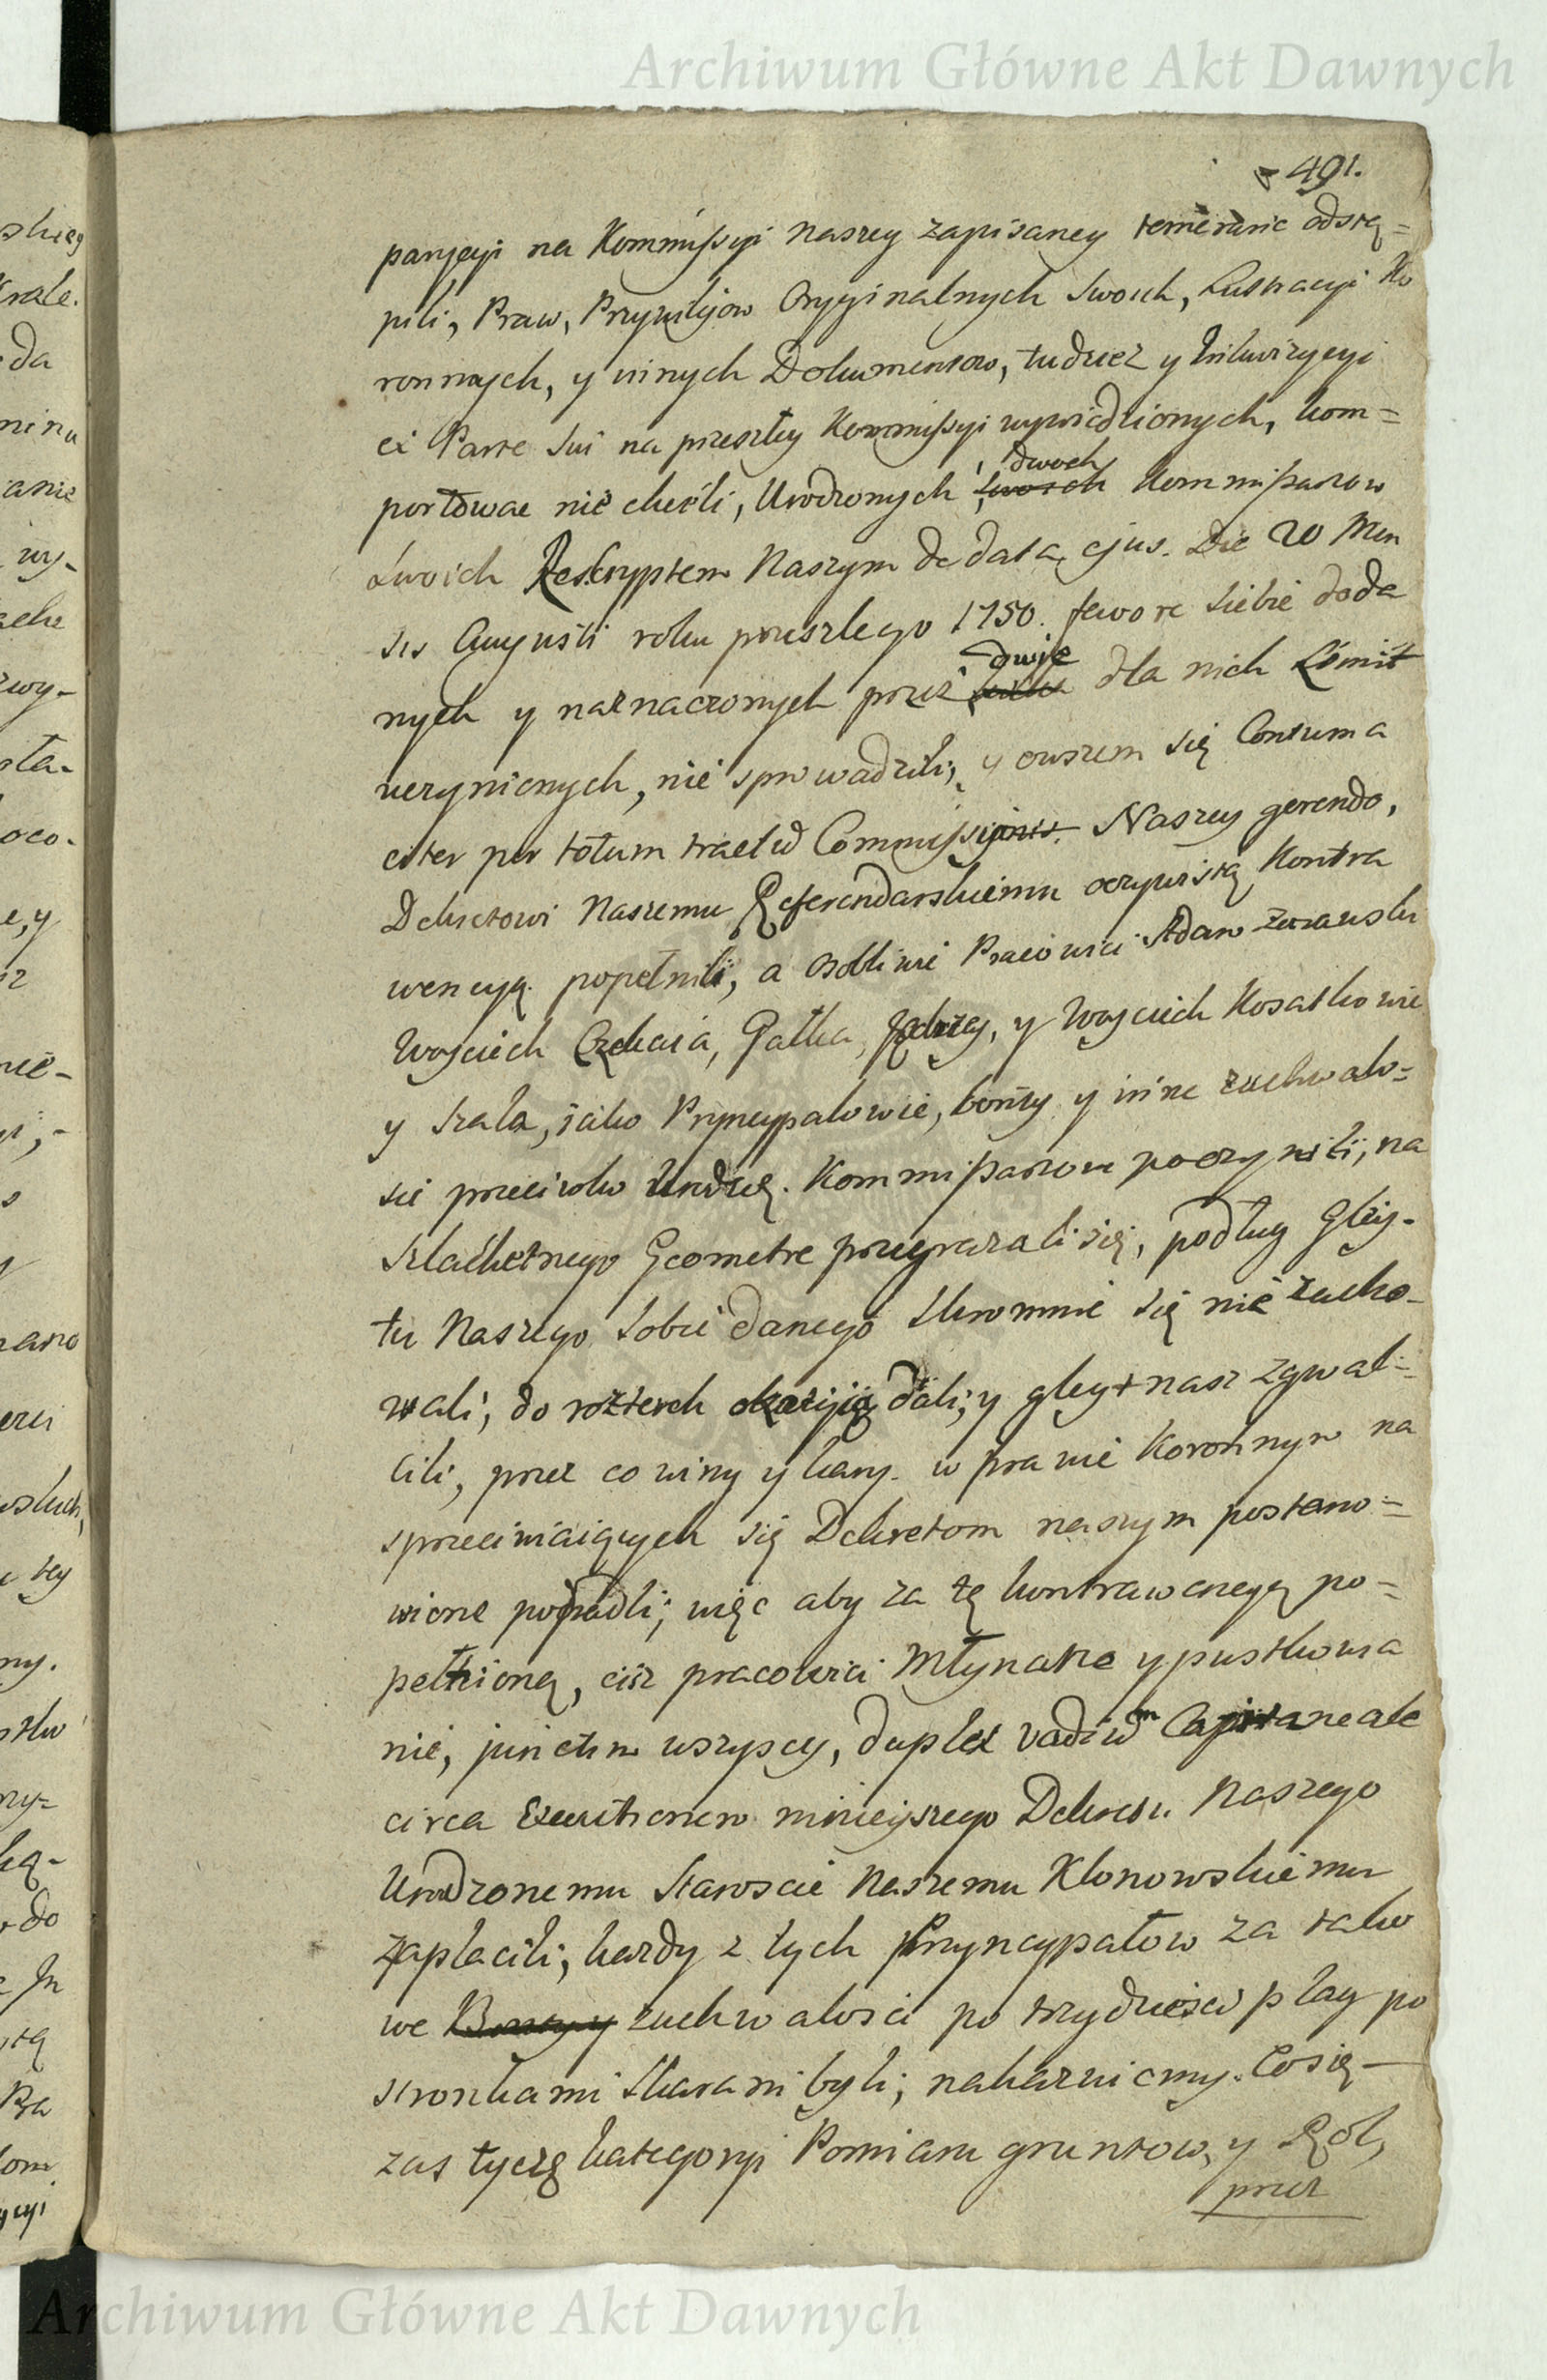 Archiwum Główne Akt Dawnych
491.
parycyi na Kommissyi Naszey zapisaney temerarie odstą=
pili, Praw, Przywilejow Oryginalnych Swoich, Lustracyi Ko
ronnych, y innych Dokumentow, tudziesz y Inkwizycyi
ex Parte Sui na przeszłey Kommissyi wywiedzionych, kom=
portować nie chcieli, Urodzonych dwoch Kommissarzow
Swoich Reskryptem Naszym de data ejus. Die 20 Men
sis Augusti roku przeszłego 1750. fawore siebie doda
nych y naznaczonych przez dwie dla nich Limit
uczynionych, nie sprowadzili, y owszem się Contuma
citer per totum tractu Commissyi Naszey gerendo,
Dekretowi Naszemu Referendarskiemu oczywistą Kontra
wencyą popełnili, a osobliwie Pracowici Adam
Woyciech Czekaia, Gałka, Jędrzey, y Woyciech Kosatkowie
y Szala, iako Pryncypałowie, bonty y inne zuchwało=
sci przeciwko Urodzę. Kommissarzom poczynili, na
Szlachetnego Geometre przegrażali się, podług Gley-
tu Naszego Sobie danego Skromnie się nie zacho-
wali, do rozterek okazyią dali, y gleyt nasz zgwał=
cili, przez co winy y kary w prawie Koronnym na
sprzeciwiaiących się Dekretom naszym postano=
wione popadli; więc aby za tę kontrawencyą po=
pełnioną, ciż pracowici Młynarze y pustkowia
nie, junctim wszyscy, duplex vadium Capitaneale
circa Executionem ninieyszego Dekretu Naszego
Urodzonemu Staroscie Naszemu Klonowskiemu
zapłacili, kazdy z tych Pryncypałow za tako
we zuchwałosci po trzydziesci plag po
stronkami Skarani byli, nakazuiemy. Co się
zas tycze kategoryi Pomiaru gruntow, y Rol,
przez
Archiwum Główne Akt Dawnych